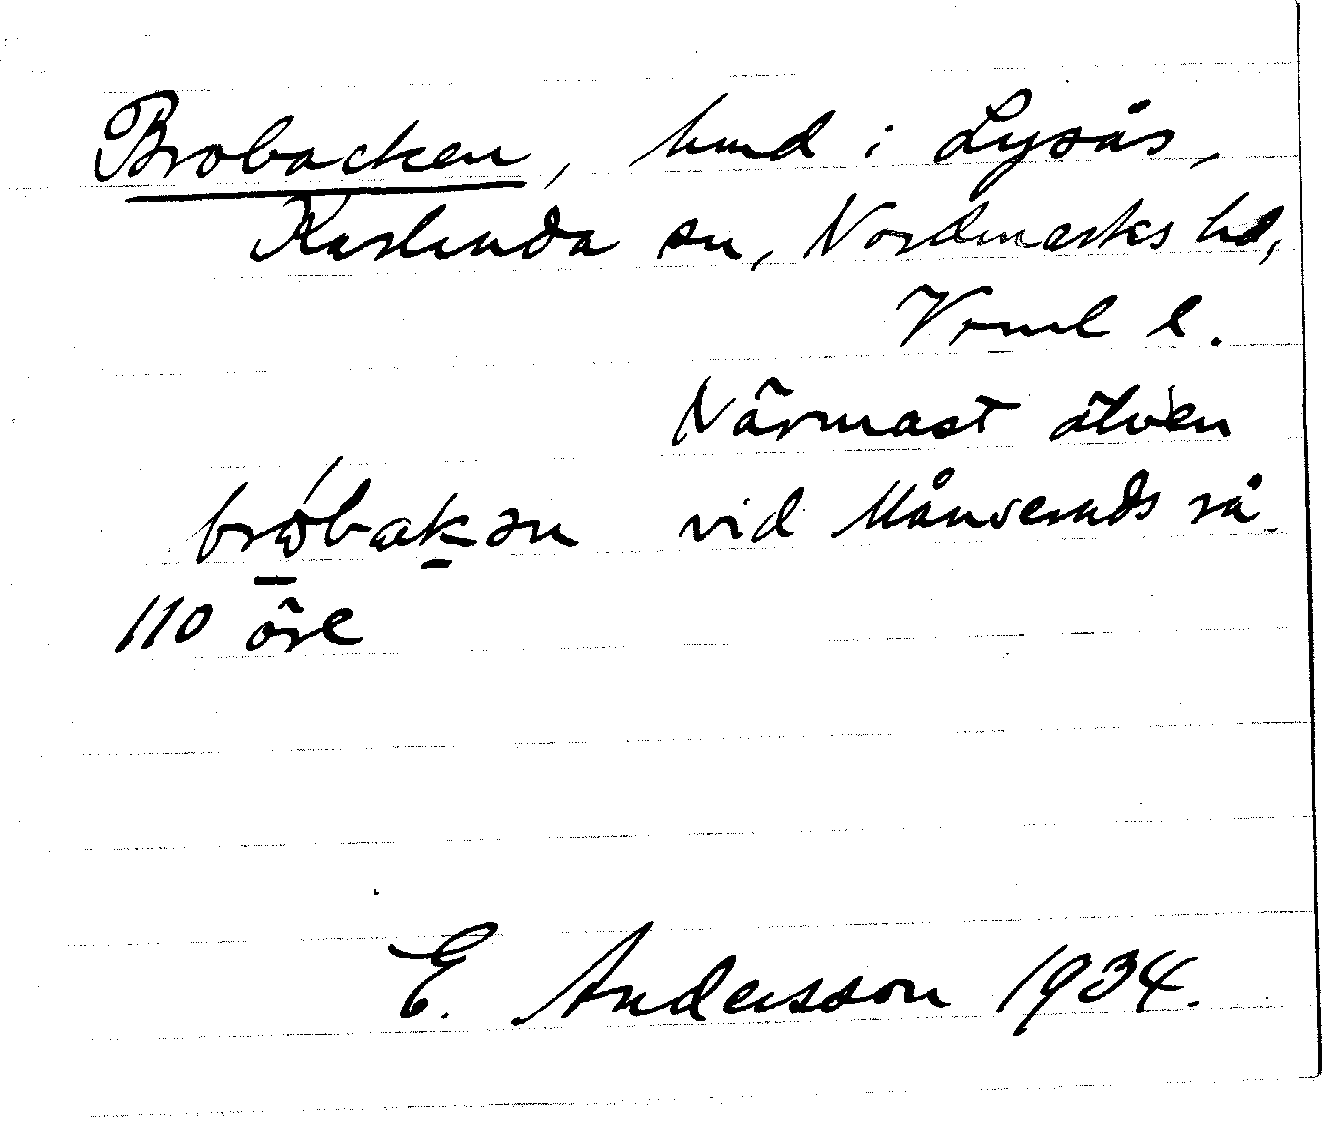 Brobacken, hmd i Lysås,
Karlanda sn, Nordmarks hd,
Vrml l.
Närmast älven
bròbakən vid Månseruds rå
110 öre
E. Andersson 1934.